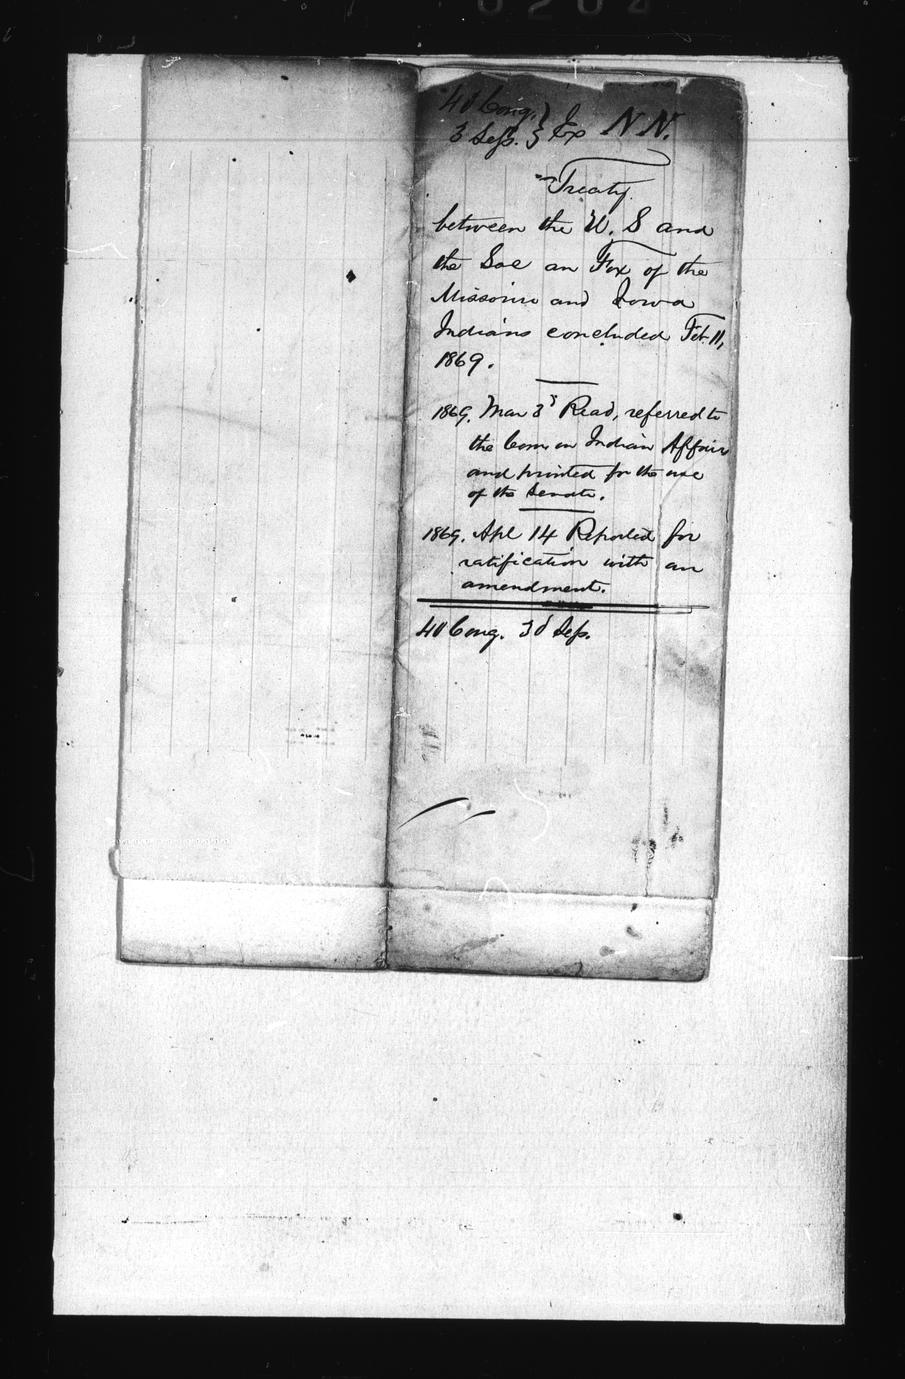 40 Cong. }
3 Sess. } Ex N.N.
Treaty
between the U. S and
the Sac an Fox of the
Missouri and Iowa
Indians concluded Feb. 11,
1869.
1869. Mar 3d Read, referred to
the Com on Indian Affairs
and printed for the use
of the Senate.
1869. Apl 14 Reported for
ratification with an
amendment.
40 Cong. 3d Sess.